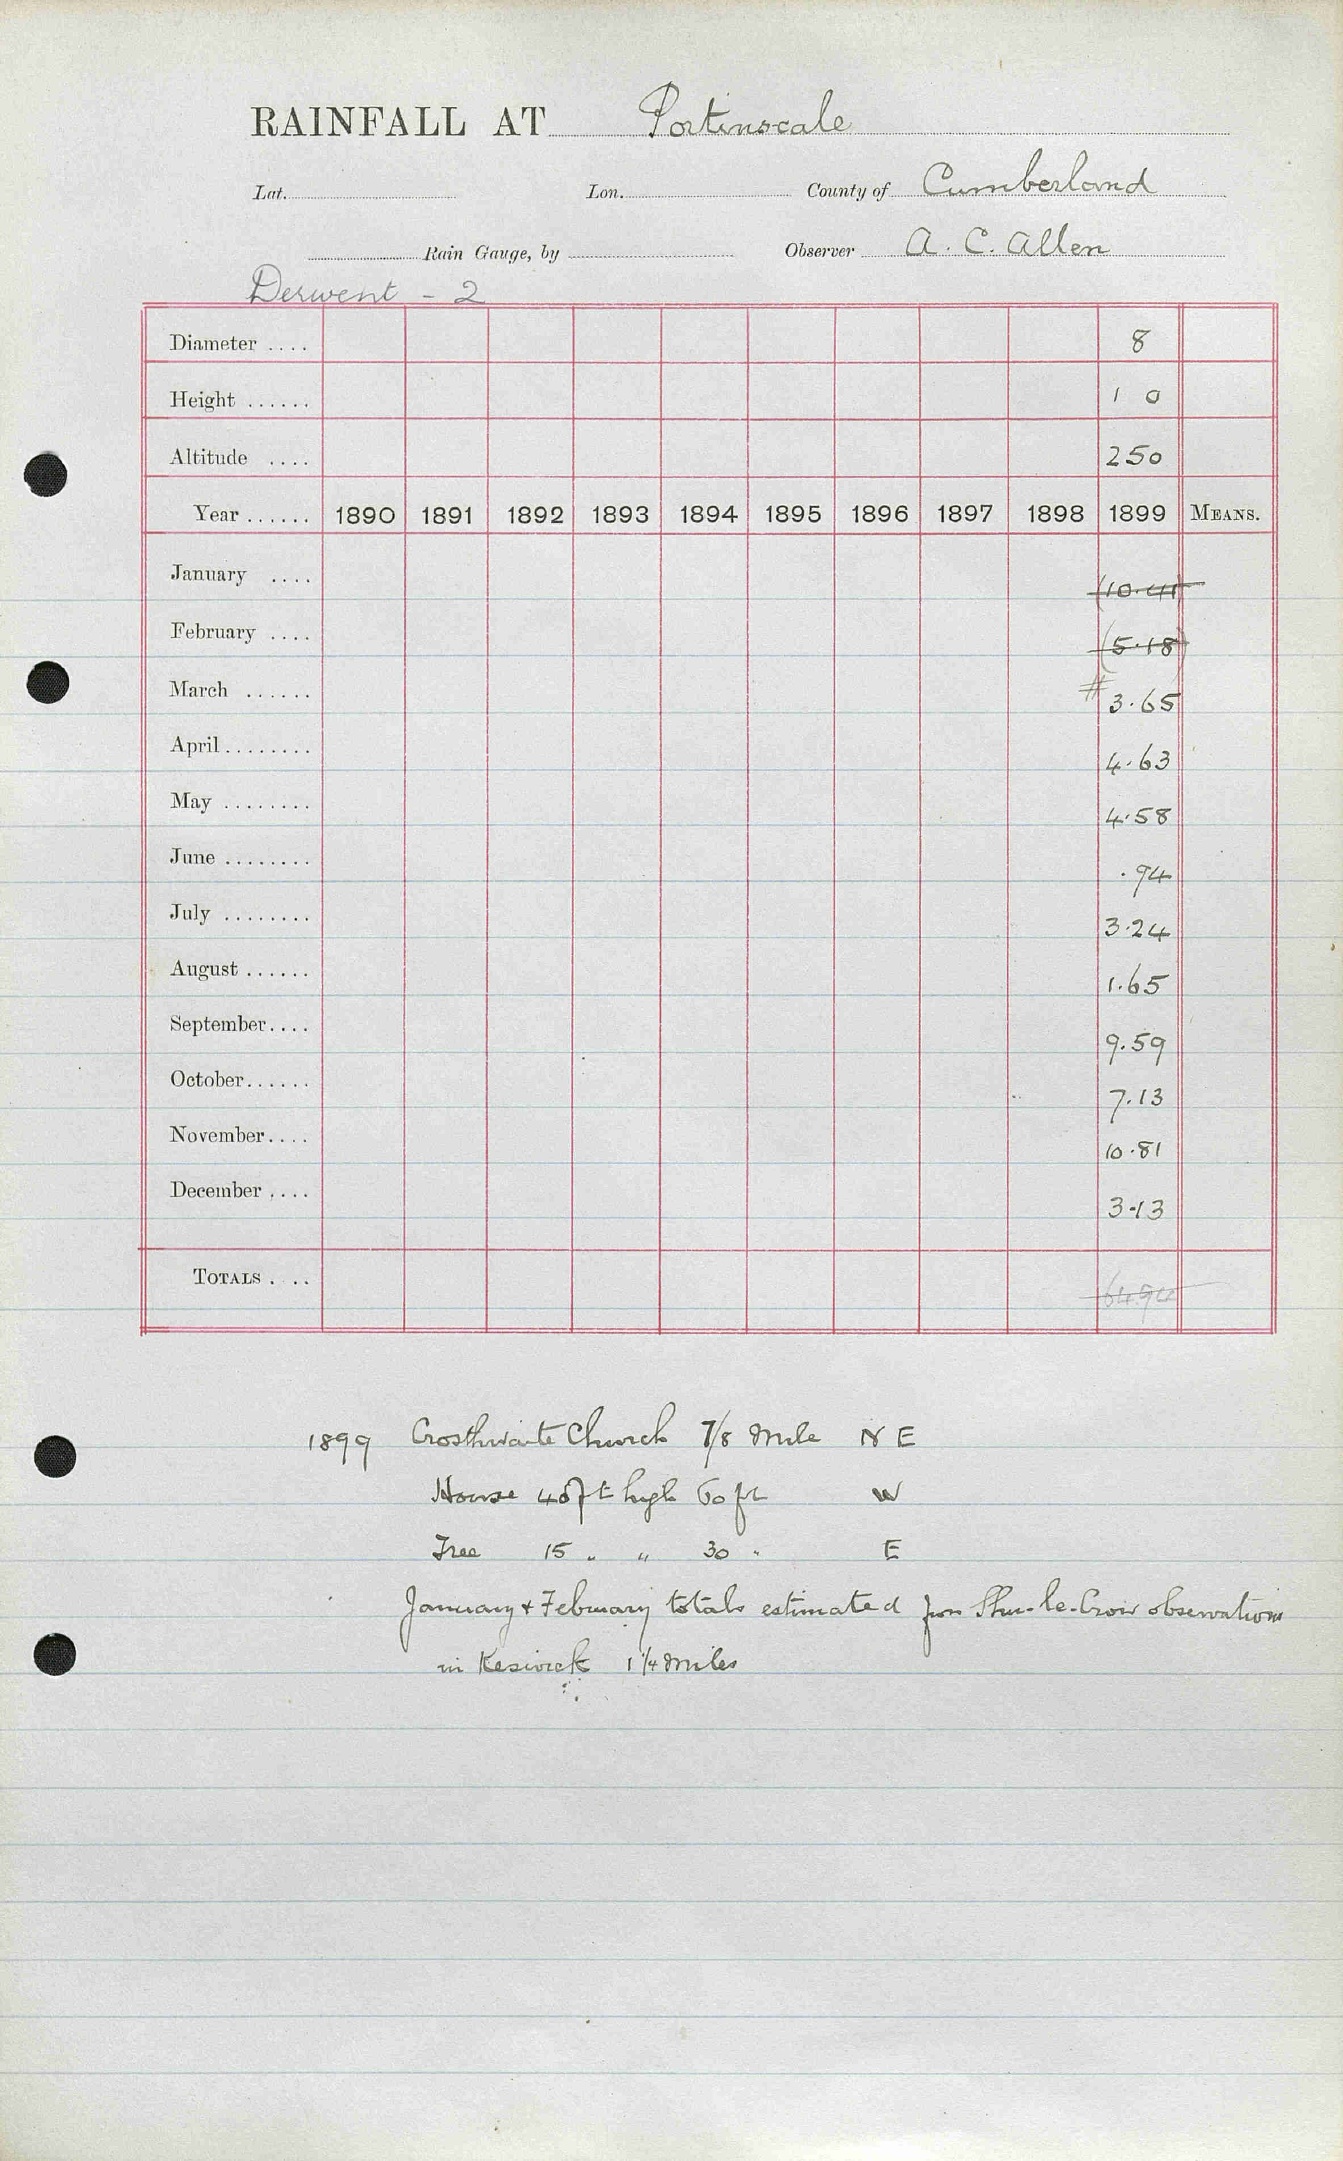 RAINFALL AT Portinscale
Lat. Lon. County of Cumberland
Rain Gauge, by Observer A. C. Allen
Derwent - 2
Diameter .... 8
Height ...... 1 0
Altitude .... 250
Year ...... 1890 1891 1892 1893 1894 1895 1896 1897 1898 1899 MEANS.
January .... (10.41)
February .... (5.18)
March ...... # 3.65
April ........ 4.63
May ........ 4.58
June ........ .94
July ........ 3.24
August ...... 1.65
September.... 9.59
October...... 7.13
November.... 10.81
December .... 3.13
TOTALS . .. 64.94
1899 Crosthwaite Church 7/8 Mile NE
House 40ft high 60 ft W
Tree 15 " " 30 " E
January & February totals estimated from Shu-le-Crow observations
in Keswick 1 1/4 Miles